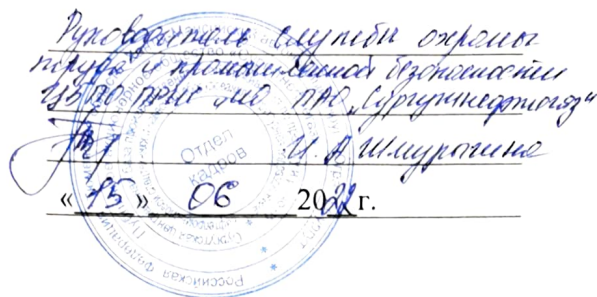 Руководитель службы охраны
труда и промышленной безопасности
ЦБПО ПРНС и НО ПАО „Сургутнефтегаз"
И. А. Шмурыгина
« 15 » 06 2022 г.
Отдел
кадров
Российская Федерация